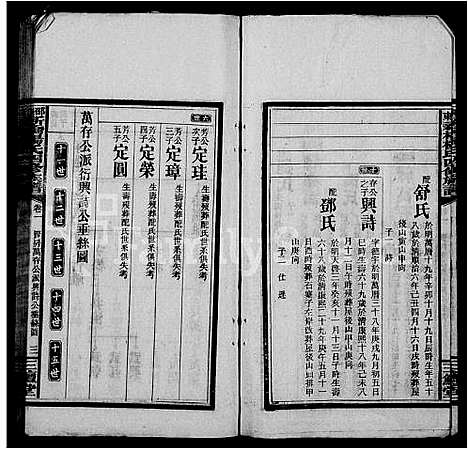 配
舒氏
於明萬曆十九年辛卯十月十九日辰時生年五十
八歲於清順治六年己丑四月十六日戌時歿葬屋
後山寅山申向
子一 詩
十世
存公之子
興詩
字
於明萬曆三十八年庚戌九月初五日
巳時生壽六十九歲於清康熙十八年己未
月十二日午時歿葬屋後山甲山庚向
配
鄧氏
於明天啓三年癸亥十一月十三日子時生壽
六十八歲於清康熙二十九年庚午五月十一
日酉時歿葬
山庚向
子一 仕遜
六世
芳公次子
定珪
生壽歿葬配氏世系俱失考
芳公三子
定璋
生壽歿葬配氏世系俱失考
芳公四子
定榮
生壽歿葬配氏世系俱失考
芳公五子
定圓
生壽歿葬配氏世系俱失考
萬存公派衍興詩公垂絲圖
十一世
十二世
十三世
十四世
十五世
卷一
三